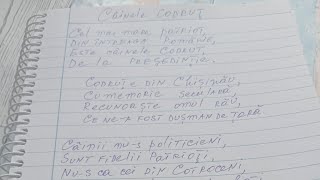 Cîinele CODRUȚ
Cel mai mare patriot,
Din întreaga România,
Este cîinele CODRUȚ,
De la PREȘEDINȚIE.
CODRUȚ E DIN Chișinău,
Cu memorie SECULARĂ,
RECUNOAȘTE omul RĂU,
CE NE-A FOST DUȘMAN DE ȚARĂ.
CÂINII nu-s politicieni,
SUNT FIDELII PATRIOȚI,
NU-S CA CEI DIN COTROCENI,